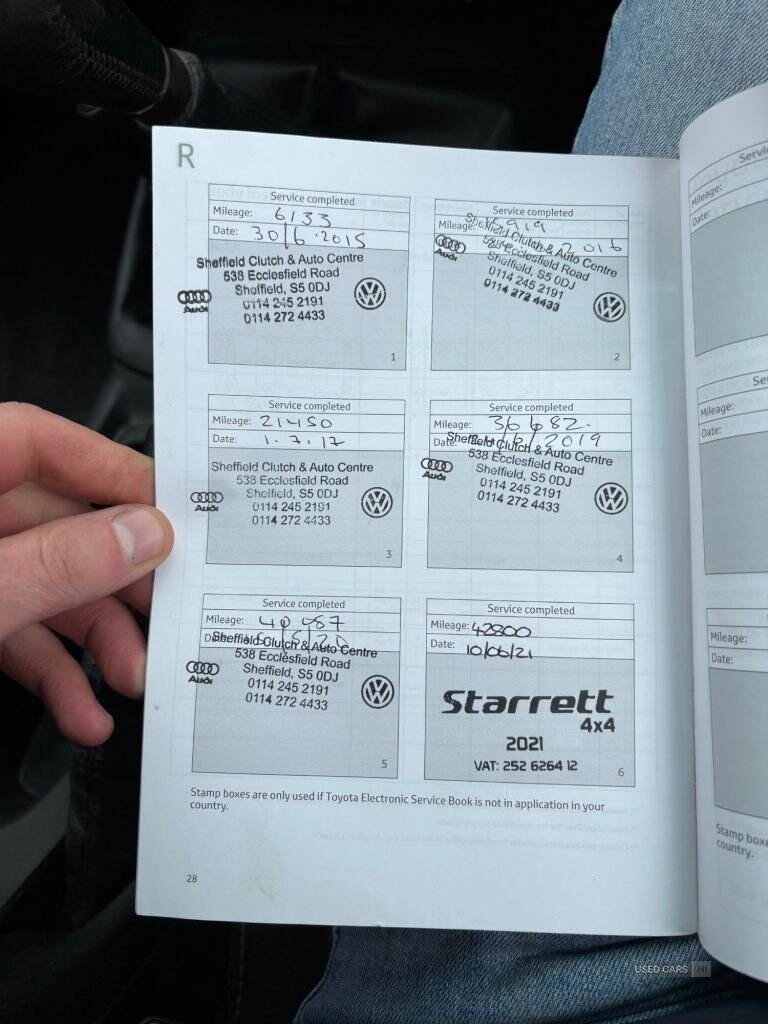 R
Service completed
Mileage: 6133
Date: 30/6.2015
Sheffield Clutch & Auto Centre
538 Ecclesfield Road
Sheffield, S5 0DJ
0114 245 2191
0114 272 4433
Audi
1
Service completed
Mileage:
2016
Sheffield Clutch & Auto Centre
538 Ecclesfield Road
Sheffield, S5 0DJ
0114 245 2191
0114 272 4433
Audi
2
Service completed
Mileage: 21450
Date: 1.7.17
Sheffield Clutch & Auto Centre
538 Ecclesfield Road
Sheffield, S5 0DJ
0114 245 2191
0114 272 4433
Audi
3
Service completed
Mileage: 36682.
Date: /6/2019
Sheffield Clutch & Auto Centre
538 Ecclesfield Road
Sheffield, S5 0DJ
0114 245 2191
0114 272 4433
Audi
4
Service completed
Mileage: 40487
Sheffield Clutch & Auto Centre
538 Ecclesfield Road
Sheffield, S5 0DJ
0114 245 2191
0114 272 4433
Audi
5
Service completed
Mileage: 42800
Date: 10/06/21
Starrett
4x4
2021
VAT: 252 6264 12
6
Stamp boxes are only used if Toyota Electronic Service Book is not in application in your
country.
28
Mileage:
Date:
Mileage:
Date:
Mileage:
Date:
Stamp boxe
country.
USED CARS NI